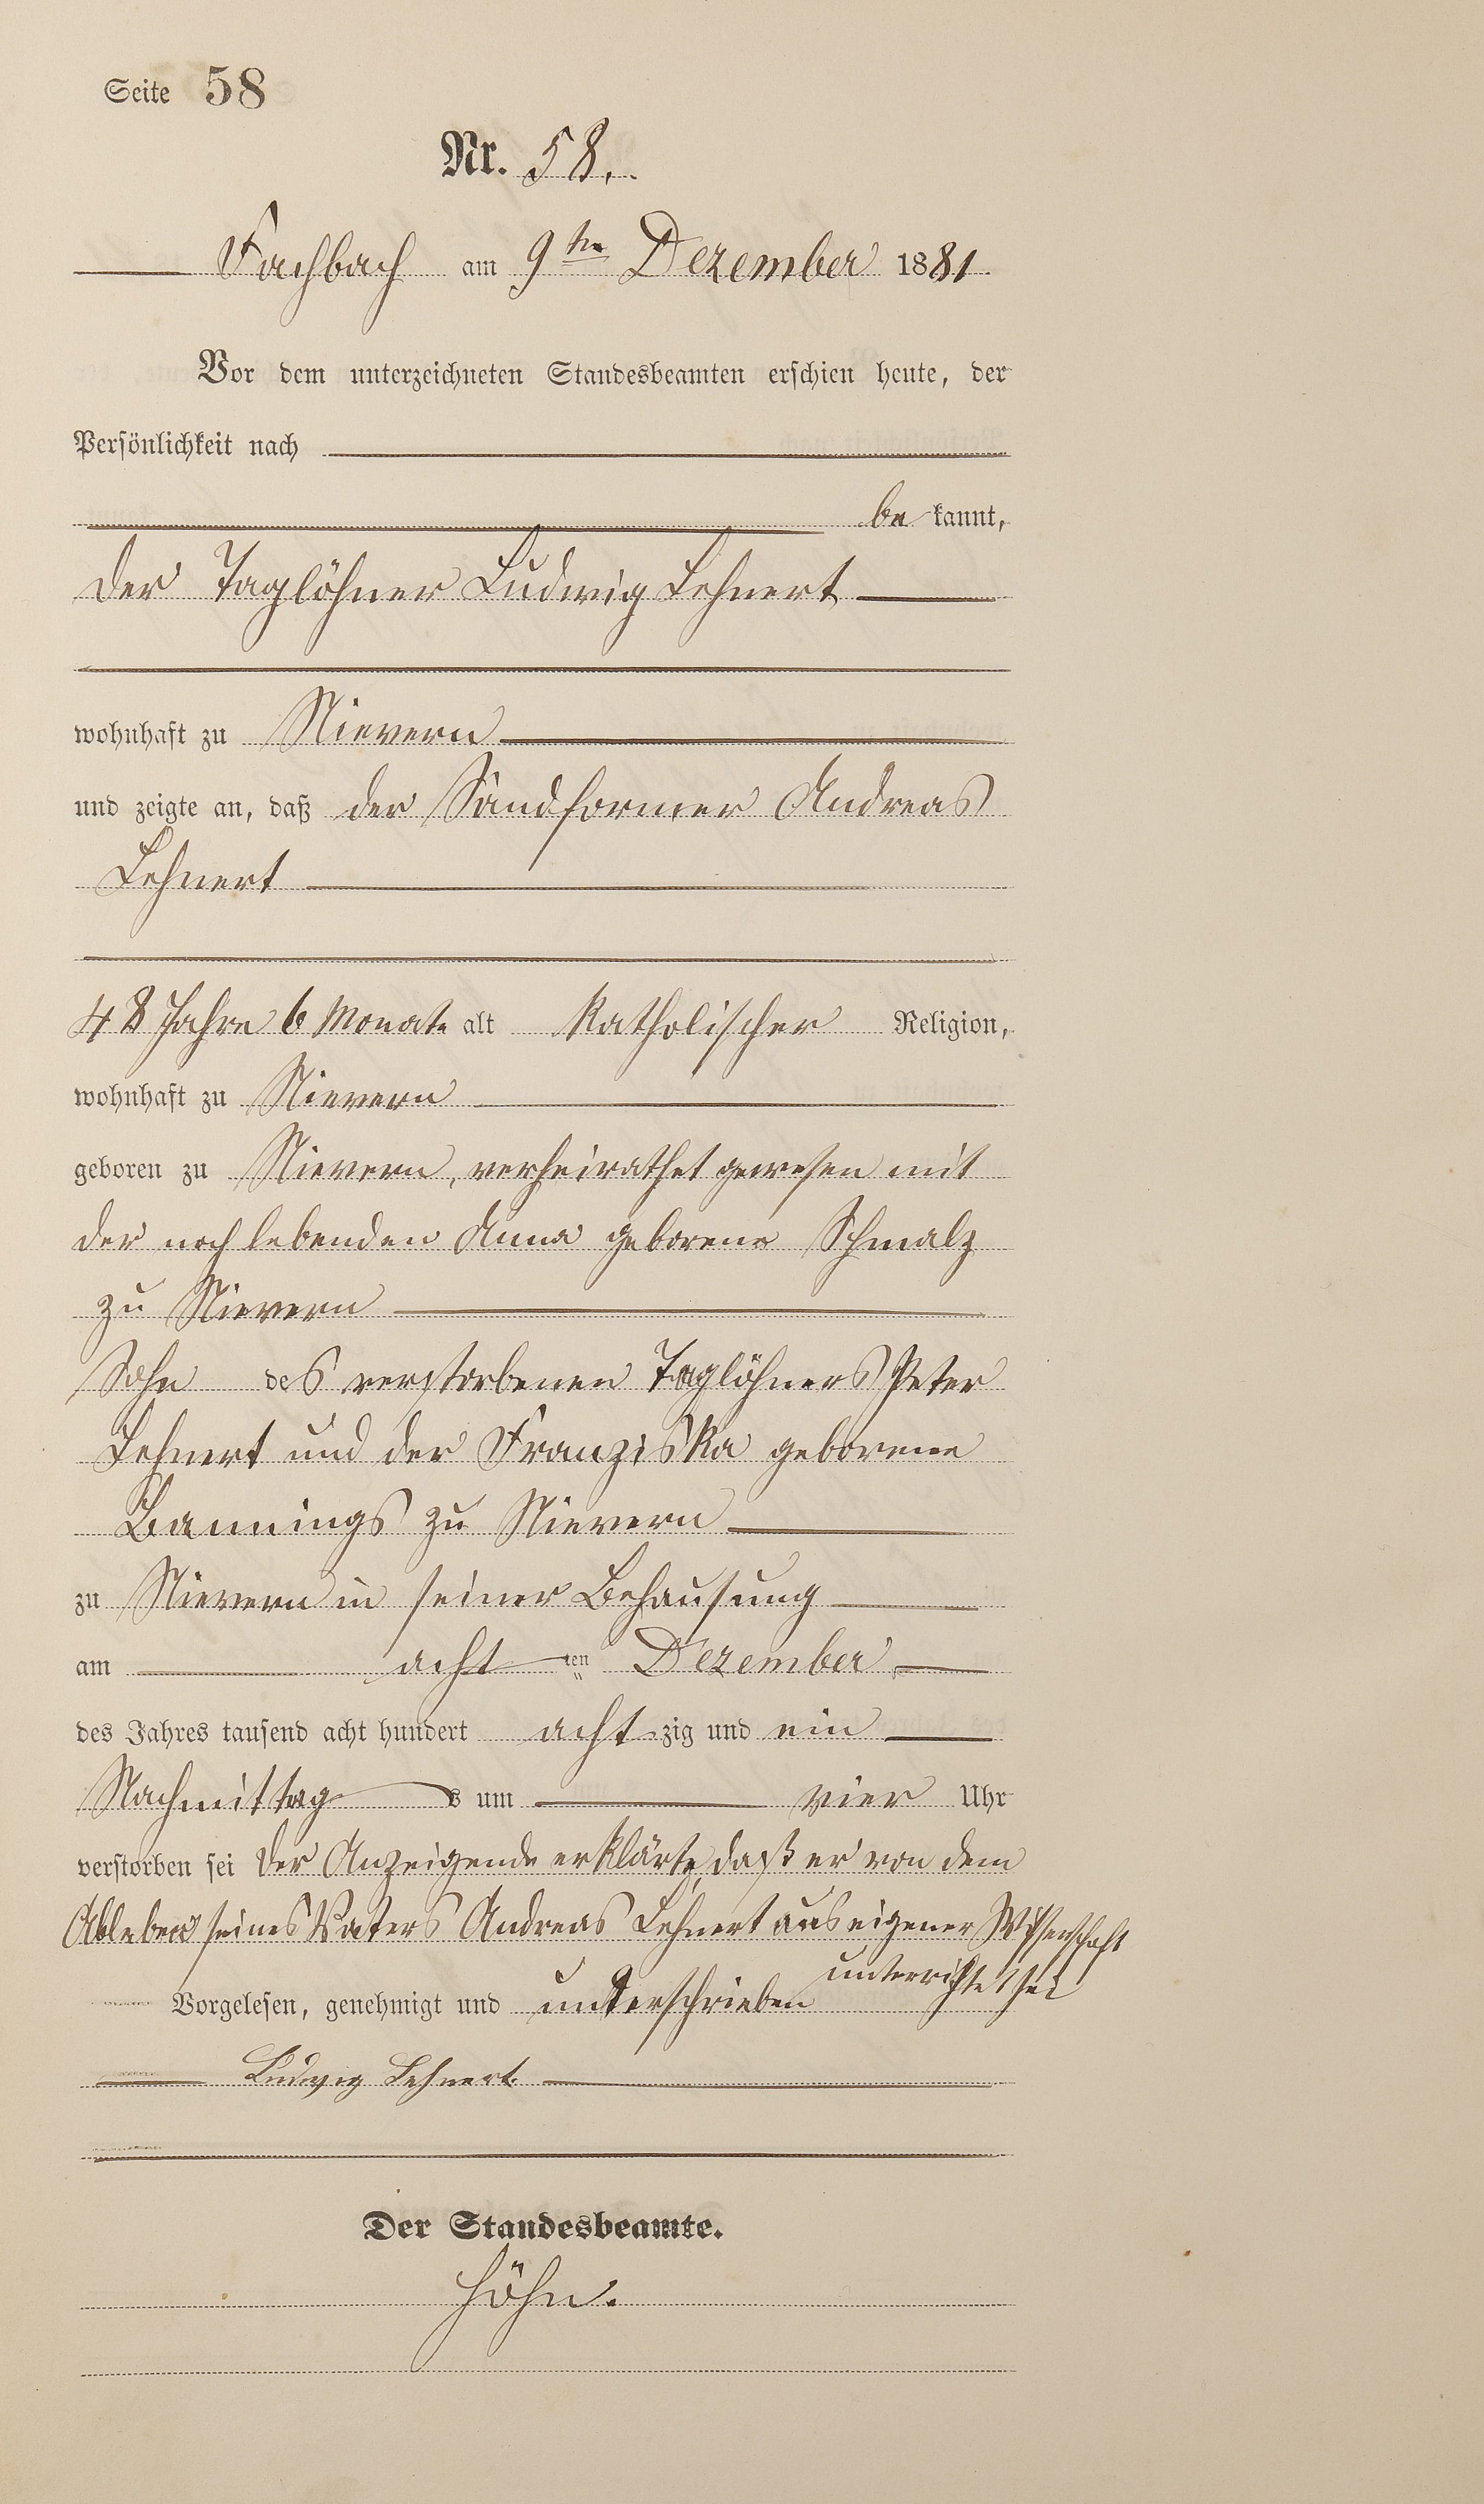 Seite 58
Nr. 58.
Fachbach am 9ten Dezember 1881
Vor dem unterzeichneten Standesbeamten erschien heute, der
Persönlichkeit nach
be kannt,
der Taglöhner Ludwig Lehnert
wohnhaft zu Nievern
und zeigte an, daß der Sandformer Andreas
Lehnert
48 Jahre 6 Monate alt Katholischer Religion,
wohnhaft zu Nievern
geboren zu Nievern, verheirathet gewesen mit
der noch lebenden Anna geborene Schmalz
zu Nievern
Sohn des verstorbenen Taglöhners Peter
Lehnert und der Franziska geborene
Bannings zu Nievern
zu Nievern in seiner Behausung
am acht ten Dezember
des Jahres tausend acht hundert acht zig und ein
Nachmittag s um vier Uhr
verstorben sei der Anzeigende erklärte, daß er von dem
Ableben seines Vaters Andreas Lehnert aus eigener Wissenschaft
unterrichtet sei
Vorgelesen, genehmigt und unterschrieben
Ludwig Lehnert.
Der Standesbeamte.
Höhn.